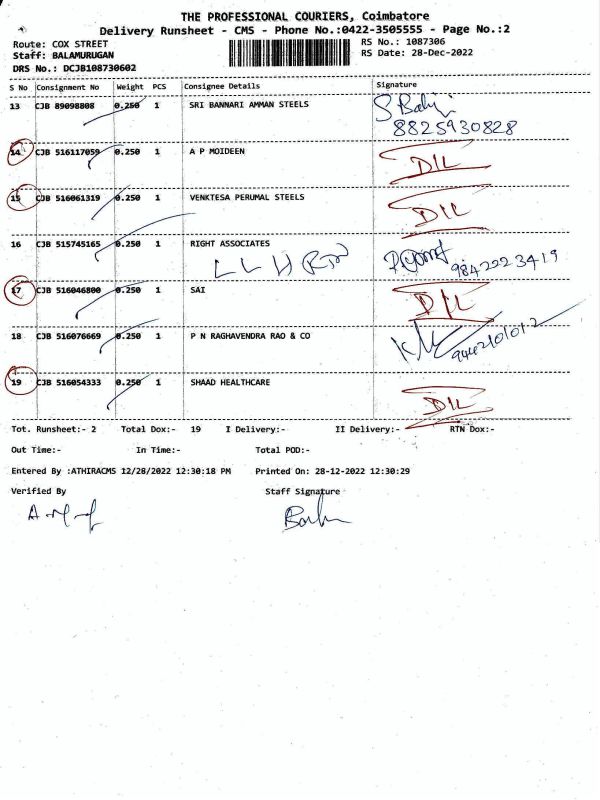 THE PROFESSIONAL COURIERS, Coimbatore
Delivery Runsheet - CMS - Phone No.:0422-3505555 - Page No.:2
Route: COX STREET
RS No.: 1087306
Staff: BALAMURUGAN
RS Date: 28-Dec-2022
DRS No.: DCJB108730602
S No Consignment No Weight PCS Consignee Details Signature
13 CJB 89098808 0.250 1 SRI BANNARI AMMAN STEELS
8825930828
14 CJB 516117059 0.250 1 A P MOIDEEN D/L
15 CJB 516061319 0.250 1 VENKTESA PERUMAL STEELS D/L
16 CJB 515745165 0.250 1 RIGHT ASSOCIATES
9842223419
17 CJB 516046800 0.250 1 SAI D/L
18 CJB 516076669 0.250 1 P N RAGHAVENDRA RAO & CO
19 CJB 516054333 0.250 1 SHAAD HEALTHCARE D/L
Tot. Runsheet:- 2 Total Dox:- 19 I Delivery:- II Delivery:- RTN Dox:-
Out Time:- In Time:- Total POD:-
Entered By :ATHIRACMS 12/28/2022 12:30:18 PM Printed On: 28-12-2022 12:30:29
Verified By Staff Signature